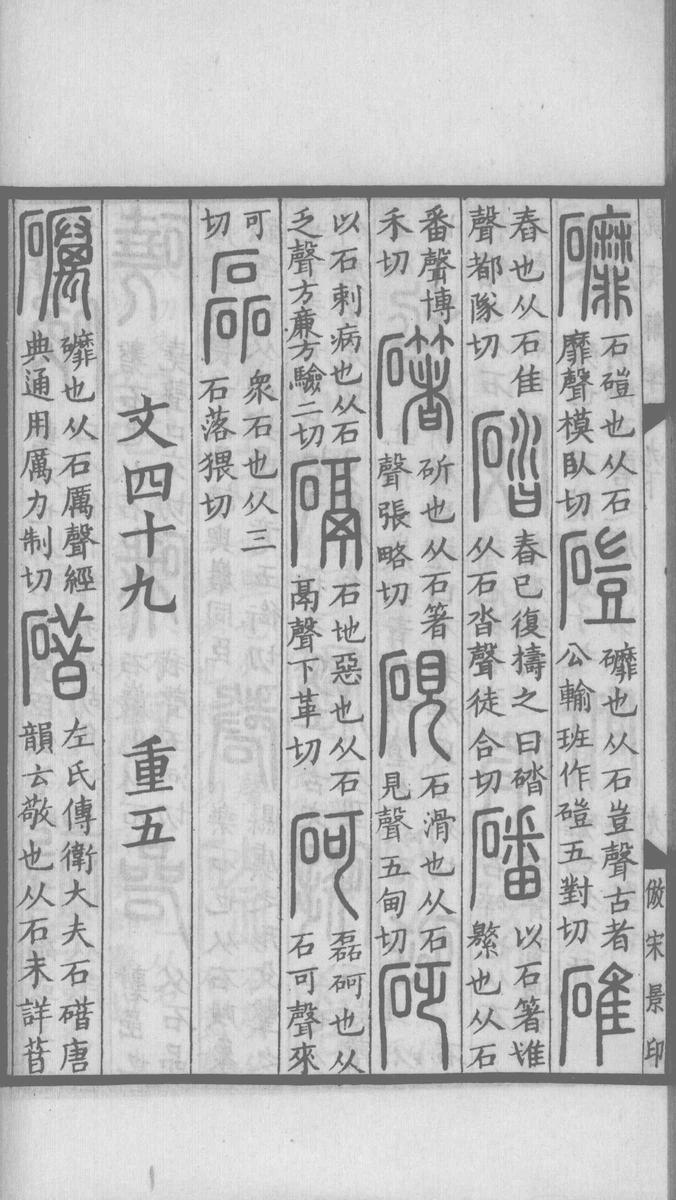 䃺
石磑也从石
靡聲模臥切
磑
䃺也从石豈聲古者
公輸班作磑五對切
碓
舂也从石隹
聲都隊切
䃀
舂已復擣之曰䃀
从石沓聲徒合切
磻
以石箸隿
繁也从石
番聲博
禾切
𥕲
斫也从石箸
聲張略切
硯
石滑也从石
見聲五甸切
砭
以石刺病也从石
乏聲方廉方驗二切
䃒
石地惡也从石
鬲聲下革切
砢
磊砢也从
石可聲來
可
切
磊
衆石也从三
石落猥切
文四十九 重五
礪
䃺也从石厲聲經
典通用厲力制切
碏
左氏傳衛大夫石碏唐
韻云敬也从石未詳昔
倣宋景印